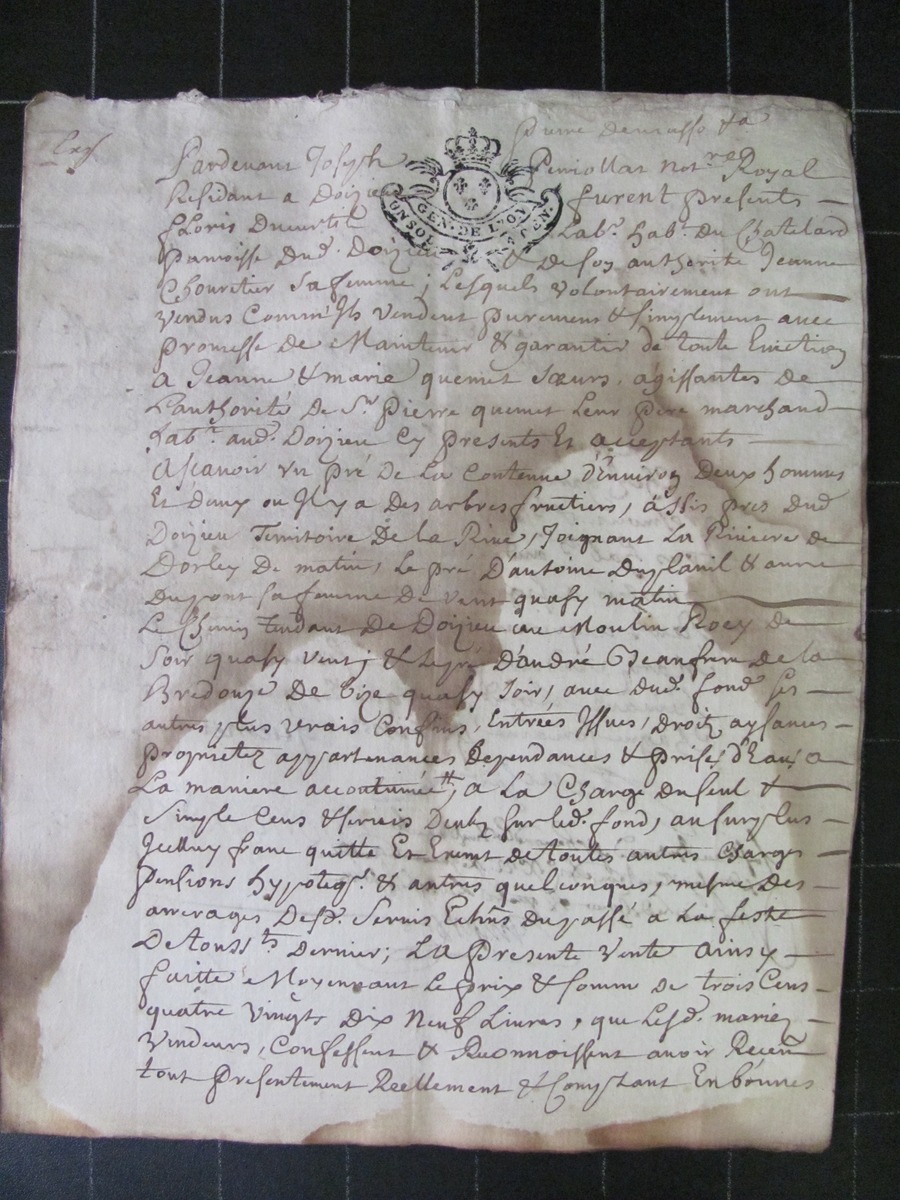 Exp
Pardevant Joseph Periollat not.re Royal
Residant a Doizieu furent presents
GEN. DE LYON
UN SOL
floris Ducurtil Lab.r hab. Du Chatelard
Paroisse dud. Doizieu & De soy authorité Jeanne
Chouretier sa femme; Lesquels volontairement ont
vendus Comm' Ils vendent purement & simplement avec
promesse de Maintenir & garantir de toute Eviction
A Jeanne & marie quemet sœurs, agissantes de
L'authorité de S.r Pierre quemet Leur pere marchand
Lab.r aud. Doizieu Cy presents Et acceptants
Ascavoir un pré De La Contenue d'Environ Deux hommes
Et demy ou Il y a Des arbres fruetiers, assis pres dud.
Doizieu Territoire de la Rive, Joignant La Riviere de
Dorley De matin, Le pré D'antoine Duplanil & anne
Dupont sa femme De vent quasy matin
Le Chemin tendant De Doizieu au Moulin De
Soir quasy vent; & Le pré d'andré Jeanfren de la
Bredouze De bize quasy soir, avec dud. fond ses
autres plus vrais Confins, Entrées Issues, droitz aysances
proprietez appartenances Dependances & prises d'Eaux a
La maniere accoutumée, a La Charge du seul &
simple Cens & servis Deub sur led. fond, au surplus
Icelluy franc quitte Et Exempt de toutes autres Charges
pensions hypoteq. & autres quelconques, mesme Des
arrerages Desd. Servis Echus du passé a La feste
De touss.ts Dernier; La presente vente ainsy
faitte Moyennant Le prix & somm de trois Cens
quatre vingts Dix Neuf Livres, que Lesd. mariez
Vendeurs, Confessent & Reconnoissent avoir Receu
tout presentement Reellement & Comptant En bonnes